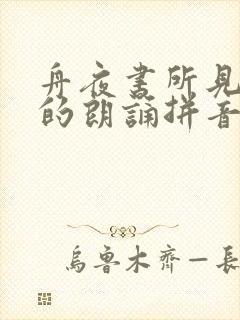 舟夜書所見
的朗誦拼音
烏魯木齊一長